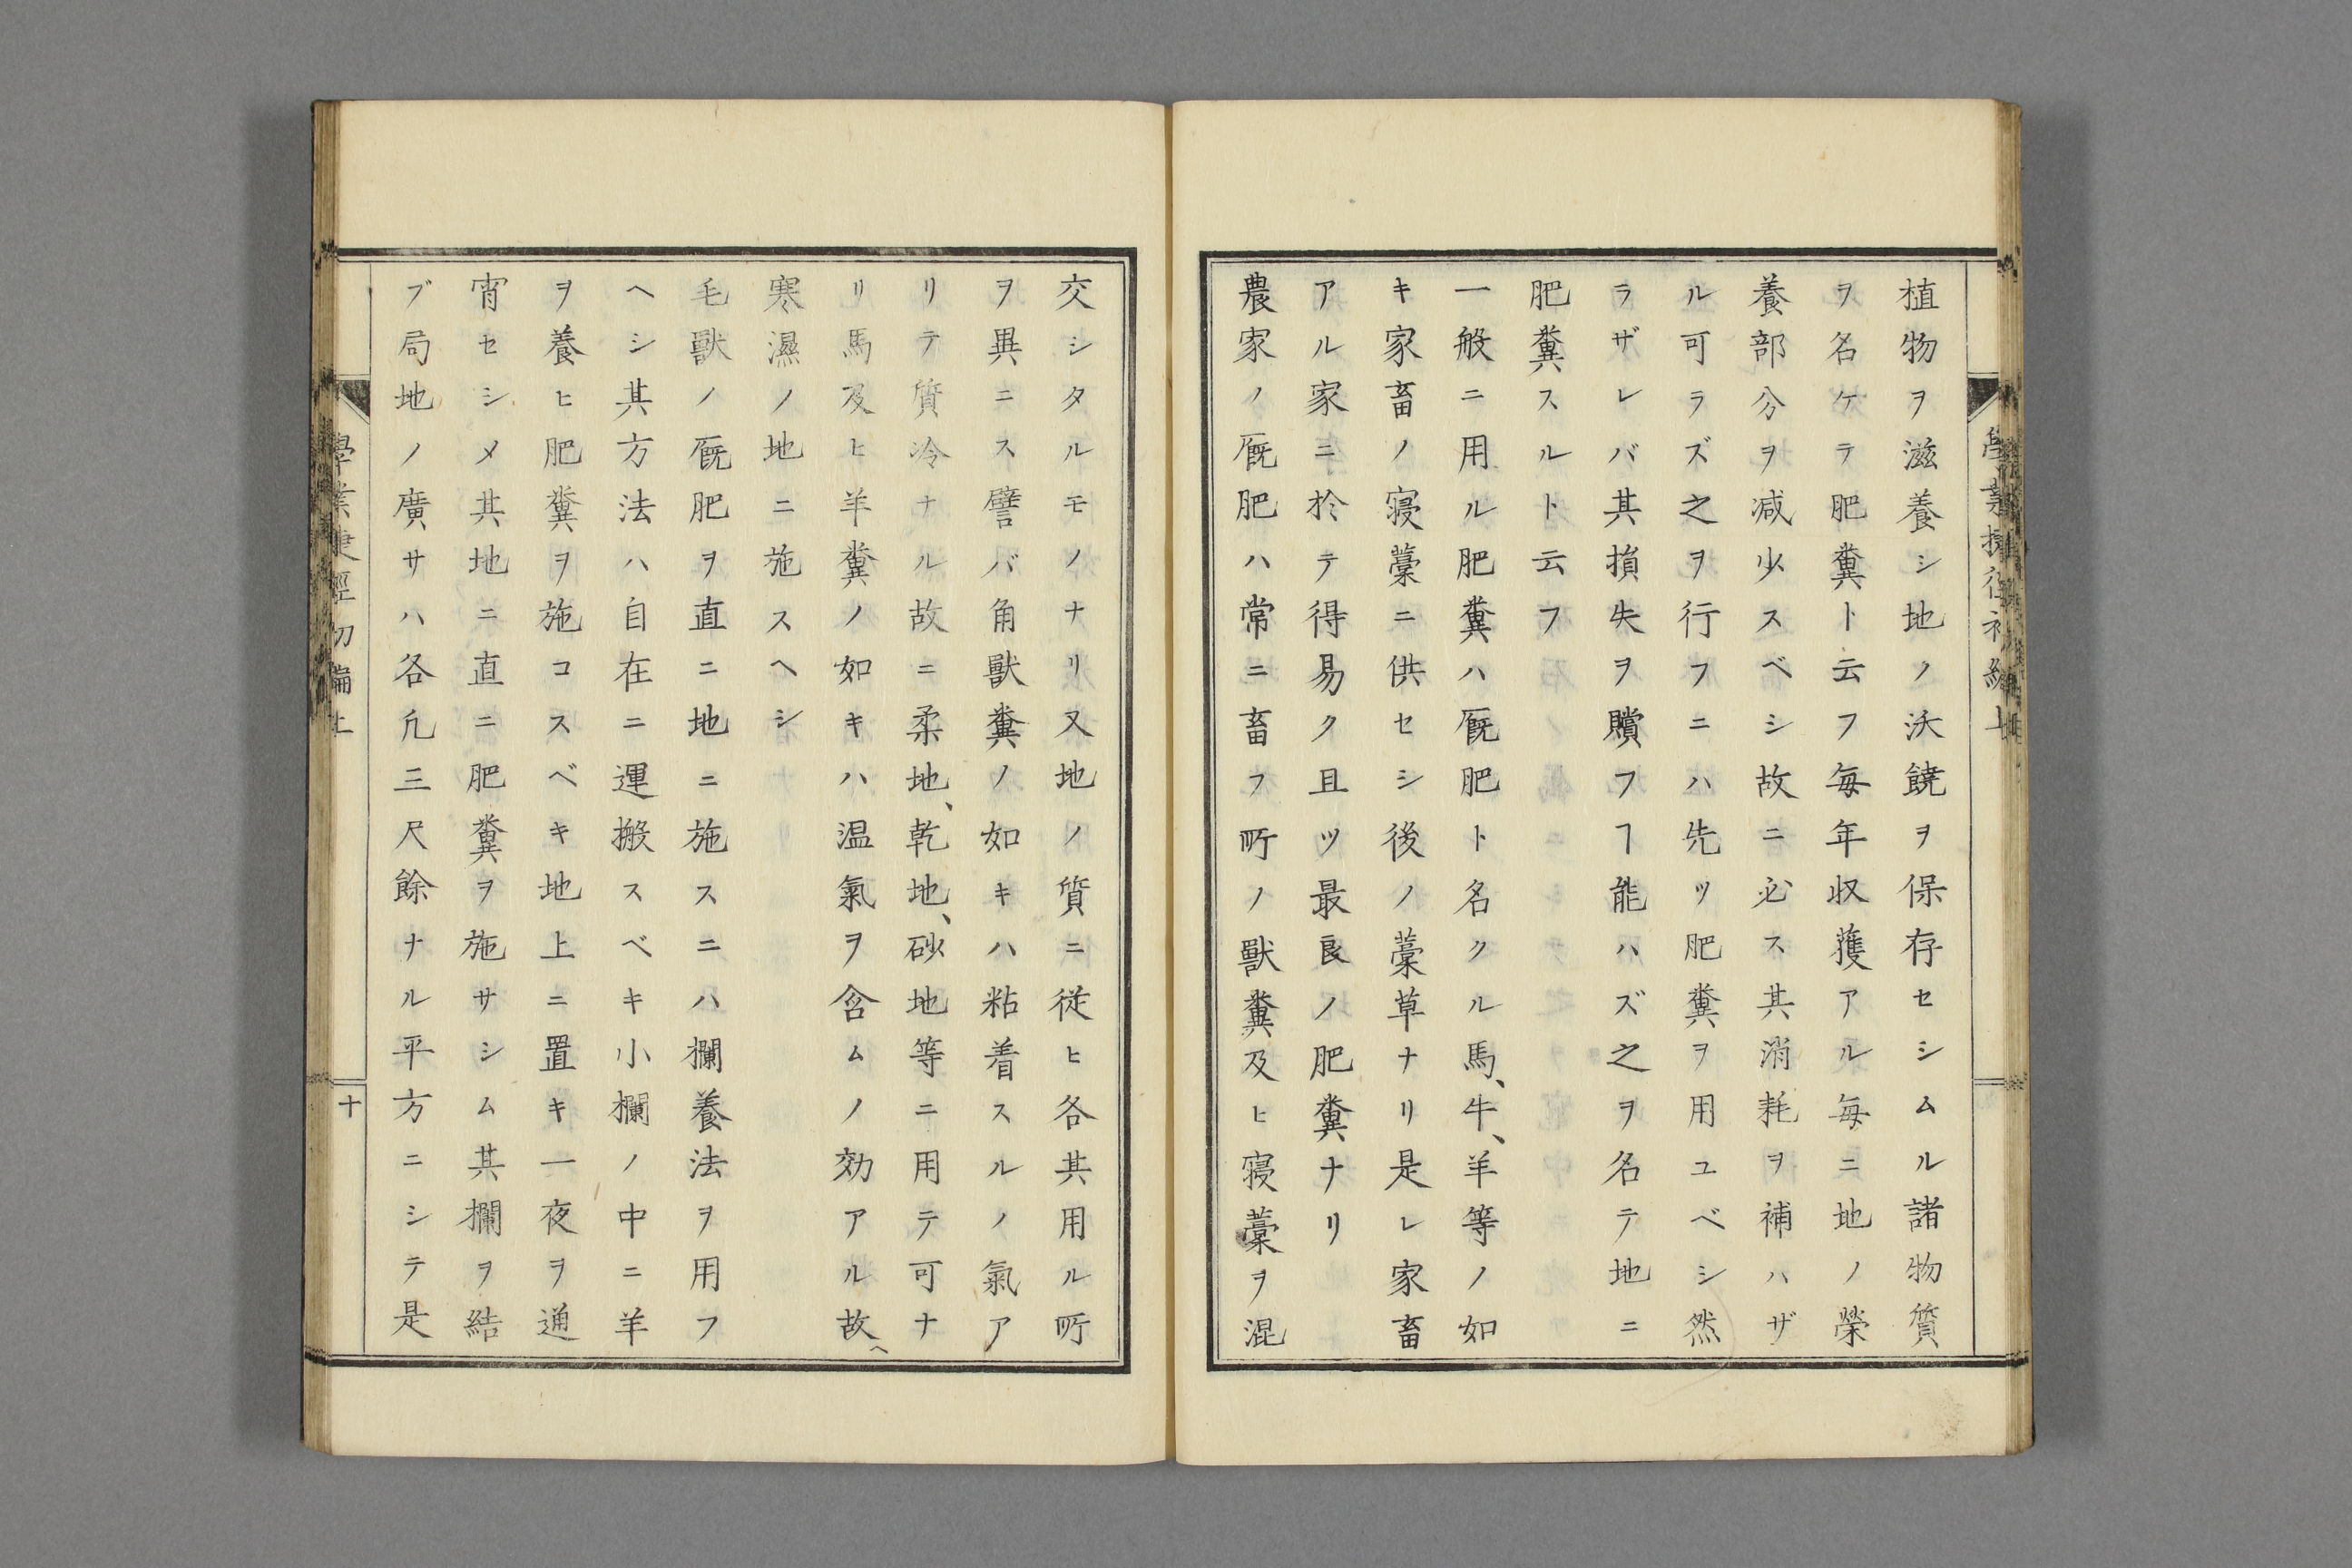 植物ヲ滋養シ地ノ沃饒ヲ保存セシムル諸物質
ヲ名ケテ肥糞ト云フ毎年収獲アル毎ニ地ノ榮
養部分ヲ減少スベシ故ニ必ス其消耗ヲ補ハザ
ル可ラズ之ヲ行フニハ先ツ肥糞ヲ用ユベシ然
ラザレバ其損失ヲ贖フヿ能ハズ之ヲ名テ地ニ
肥糞スルト云フ
一般ニ用ル肥糞ハ厩肥ト名クル馬、牛、羊等ノ如
キ家畜ノ寝藁ニ供セシ後ノ藁草ナリ是レ家畜
アル家ニ於テ得易ク且ツ最良ノ肥糞ナリ
農家ノ厩肥ハ常ニ畜フ所ノ獣糞及ヒ寝藁ヲ混
交シタルモノナリ又地ノ質ニ従ヒ各其用ル所
ヲ異ニス譬バ角獣糞ノ如キハ粘着スルノ氣ア
リテ質冷ナル故ニ柔地、乾地、砂地等ニ用テ可ナ
リ馬及ヒ羊糞ノ如キハ温氣ヲ含ムノ効アル故ヘ
寒濕ノ地ニ施スヘシ
毛獣ノ厩肥ヲ直ニ地ニ施スニハ欄養法ヲ用フ
ヘシ其方法ハ自在ニ運搬スベキ小欄ノ中ニ羊
ヲ養ヒ肥糞ヲ施コスベキ地上ニ置キ一夜ヲ通
宵セシメ其地ニ直ニ肥糞ヲ施サシム其欄ヲ結
ブ局地ノ廣サハ各凡三尺餘ナル平方ニシテ是
學業捷徑初編上
十